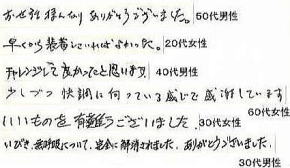 お世話様になり ありがとうございました。 50代男性
早くから装着していればよかった。 20代女性
チャレンジして良かったと思います 40代男性
少しづつ 快調に向っている感じで感謝しています
60代女性
いいものを有難うございました. 30代女性
いびき、無呼吸について、完全に解消されました。ありがとうございました.
30代男性